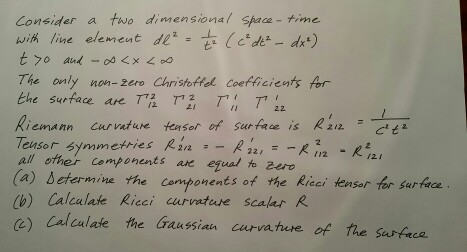 Consider a two dimensional space-time
with line element dl² = 1/t² (c²dt² - dx²)
t > 0 and -∞ < x < ∞
The only non-zero Christoffel coefficients for
the surface are Γ²₁₂ Γ²₂₁ Γ¹₁₁ Γ¹₂₂
Riemann curvature tensor of surface is R¹₂₁₂ = 1/c²t²
Tensor symmetries R¹₂₁₂ = - R¹₂₂₁ = - R²₁₁₂ = R²₁₂₁
all other components are equal to zero
(a) Determine the components of the Ricci tensor for surface.
(b) Calculate Ricci curvature scalar R
(c) Calculate the Gaussian curvature of the surface